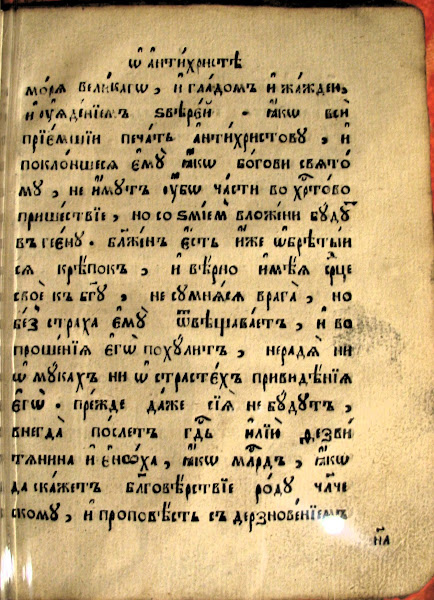 Ѡ҆ а҆нтїхрїстѣ
мо́рѧ вели́кагѡ, и҆ гла́домъ и҆ жа́ждею,
и҆ ᲂу҆ѧде́нїемъ ѕвѣре́й · ꙗ҆́кѡ всѝ
прїе́мшїи печа́ть а҆нти́христову, и҆
поклоншесѧ є҆мꙋ̀ ꙗ҆́кѡ бо́гови свѧто́
мꙋ, не и҆́мꙋтъ ᲂу҆́бѡ ча́сти во хрⷭ҇то́во
прише́ствїе, но со ѕмі́емъ вложе́ни бꙋ́дꙋⷮ
въ гее́нꙋ · бл҃же́нъ є҆́сть и҆́же ѡ҆брѣ́тыйи
сѧ крѣ́покъ, и҆ вѣ́рно и҆мѣ́ѧ срⷣце
своѐ къ бг҃ꙋ, не сꙋмнѧ́ѧсѧ врага̀, но
беⷥ стра́ха є҆мꙋ̀ ѿвѣщава́етъ, и҆ во
проше́нїѧ є҆гѡ̀ похꙋ́литъ, неради́ ни
ѡ҆ мꙋ́кахъ ни ѡ҆ страсте́хъ привидѣ́нїѧ
є҆гѡ̀ · пре́жде да́же сїѧ̀ не бꙋ́дꙋтъ,
внегда̀ по́слетъ гдⷭ҇ь и҆лїю̀ ѳезви́
тѧнина и҆ є҆нѡ́ха, ꙗ҆́кѡ млⷭ҇рдъ, ꙗ҆́кѡ
да ска́жетъ бл҃говѣ́рствїе ро́дꙋ чл҃че
скомꙋ, и҆ проповѣ́сть съ дерзнове́нїемъ